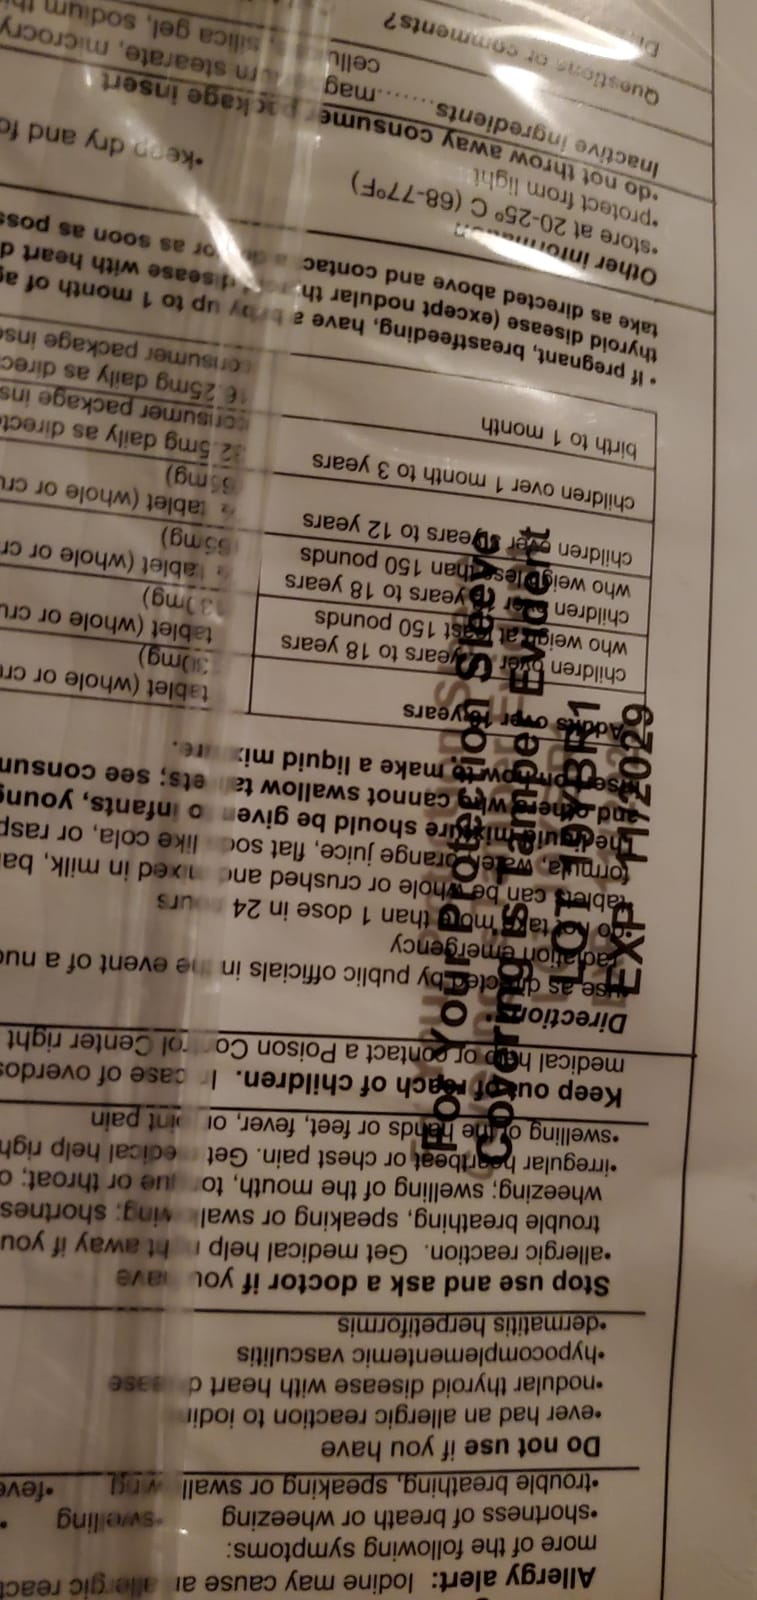 Allergy alert: Iodine may cause an allergic reac
more of the following symptoms:
•shortness of breath or wheezing •swelling •
•trouble breathing, speaking or swallowing •feve
Do not use if you have
•ever had an allergic reaction to iodin
•nodular thyroid disease with heart disease
•hypocomplementemic vasculitis
•dermatitis herpetiformis
Stop use and ask a doctor if you have
•allergic reaction. Get medical help right away if you
trouble breathing, speaking or swallowing; shortnes
wheezing; swelling of the mouth, tongue or throat; o
•irregular heartbeat or chest pain. Get medical help righ
•swelling of the hands or feet, fever, or joint pain
Keep out of reach of children. In case of overdos
medical help or contact a Poison Control Center right
Directions
•use as directed by public officials in the event of a nuc
radiation emergency
•do not take more than 1 dose in 24 hours
•tablets can be whole or crushed and mixed in milk, ba
formula, water, orange juice, flat soda like cola, or rasp
•the liquid mixture should be given to infants, young
and others who cannot swallow tablets; see consum
insert on how to make a liquid mixture.
Adults over 18 years
tablet (whole or cru
130mg)
children over 12 years to 18 years
who weigh at least 150 pounds
tablet (whole or cru
130mg)
children over 12 years to 18 years
who weigh less than 150 pounds
tablet (whole or cr
65mg)
children over 3 years to 12 years
tablet (whole or cru
65mg)
children over 1 month to 3 years
32.5mg daily as directe
consumer package ins
birth to 1 month
16.25mg daily as direc
consumer package inse
• If pregnant, breastfeeding, have a baby up to 1 month of ag
thyroid disease (except nodular thyroid disease with heart d
take as directed above and contact a doctor as soon as poss
Other information
•store at 20-25º C (68-77ºF)
•protect from light
•keep dry and fo
•do not throw away consumer package insert
Inactive ingredients........magnesium stearate, microcry
cellulose, silica gel, sodium thi
Questions or comments?
For Your Protection Sleeve
Covering Is Tamper Evident
LOT 19YBR1
EXP 11/2029